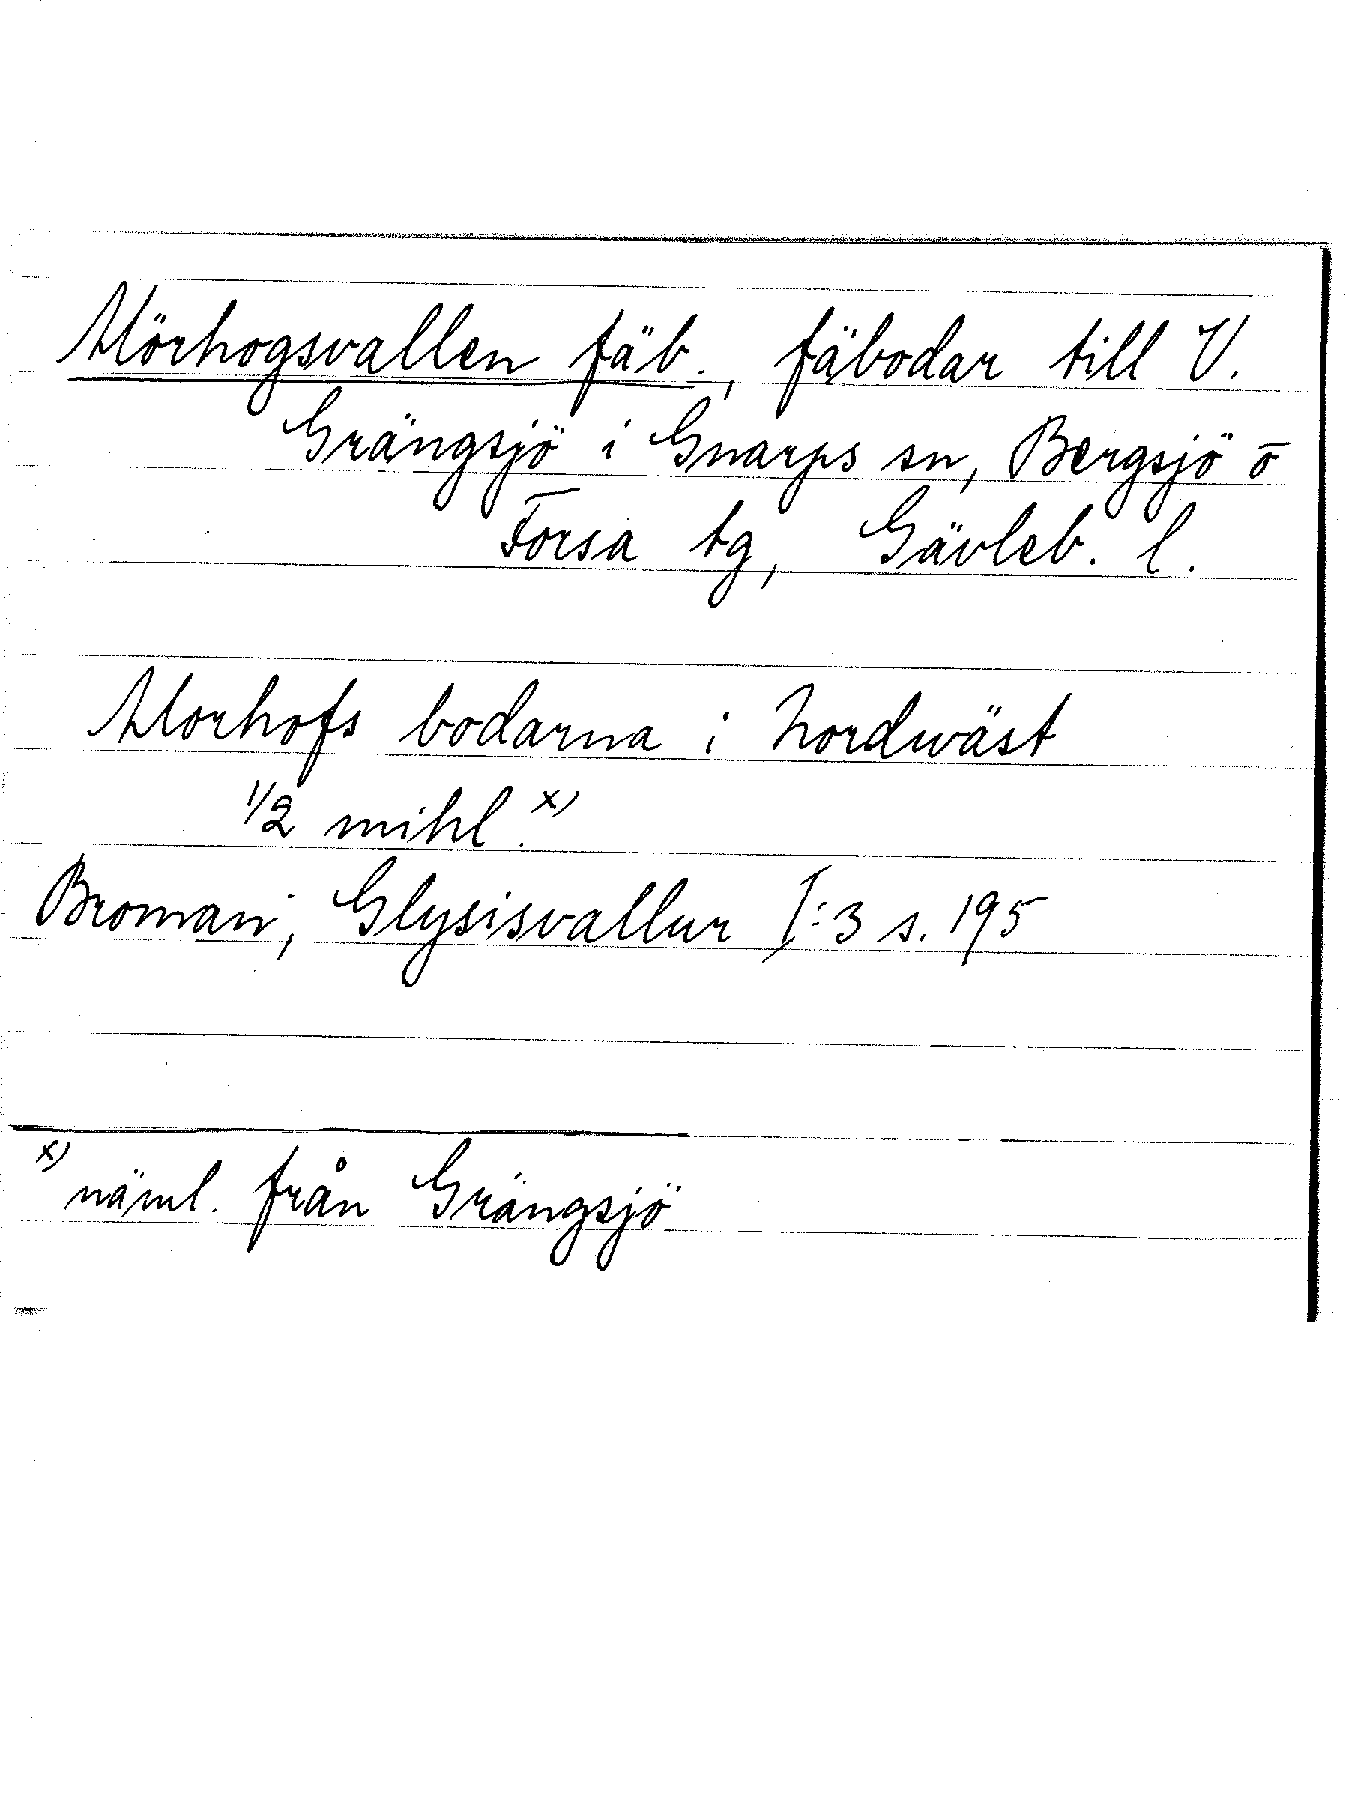 Mörhogsvallen fäb., fäbodar till V.
Grängsjö i Gnarps sn, Bergsjö o
Forsa tg, Gävleb. l.
Morhofs bodarna i Nordwäst
1/2 mihl.x)
Broman, Glysisvallur I:3 s. 195
x) näml. från Grängsjö